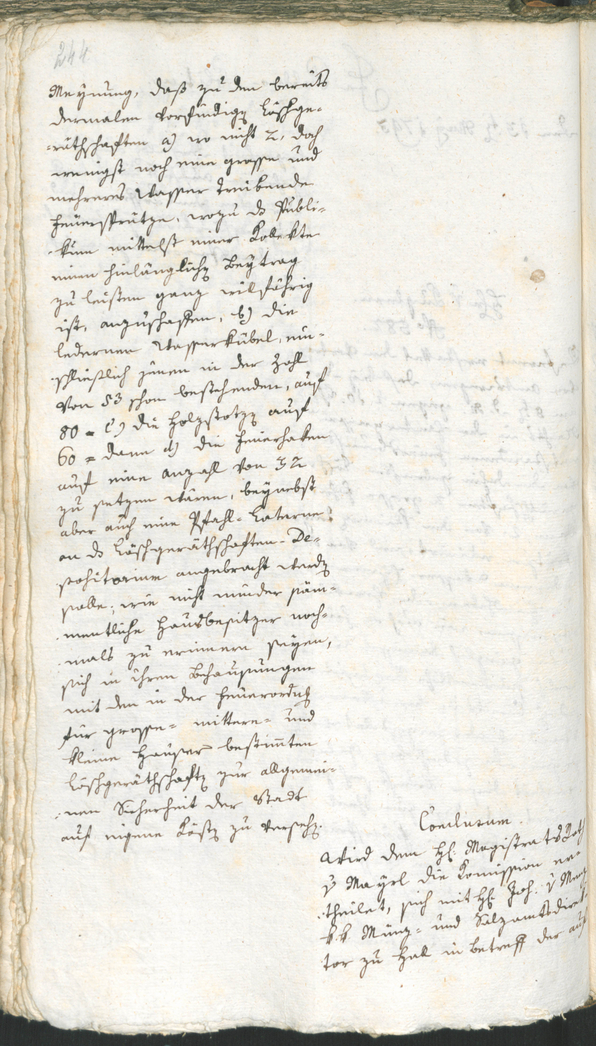 244
Meynung, daß zu den bereits
dermalen vorfündigen Löschge-
räthschaften a) wo nicht 2, doch
wenigst noch eine grosse und
mehreres Wasser treibende
Feuersprütze, wozu ds Publi-
kum mittelst einer Kolekte
einen hinlänglichen Beytrag
zu leisten ganz wilfährig
ist, anzuschaffen, b) die
ledernen Wasserkübel, ein-
schließlich jenen in der Zahl
von 53 schon bestehenden, auf
80 = c) die Holz auf
60 = dann d) die Feuerhaken
auf eine Anzahl von 32
zu setzen wären, beynebst
aber auch eine Pfahl-Laterne
an ds Löschgeräthschaften-De-
positorium angebracht werden
solle; wie nicht minder säm-
mentliche Hausbesitzer noch-
mals zu erinnern seyen,
sich in ihren Behausungen
mit den in der Feuerordnung
für grosse- mittere- und
kleine Häuser bestimten
Löschgeräthschaften zur allgemei-
nen Sicherheit der Stadt
auf eigene Kösten zu versehen.
Conclusum.
Wird dem H. Magistrats Rath
v Mayrl die Komission er-
theilet, sich mit H. Joh. v
k k Münz- und Salzamtsdirek-
tor zu Hal in betreff der auf